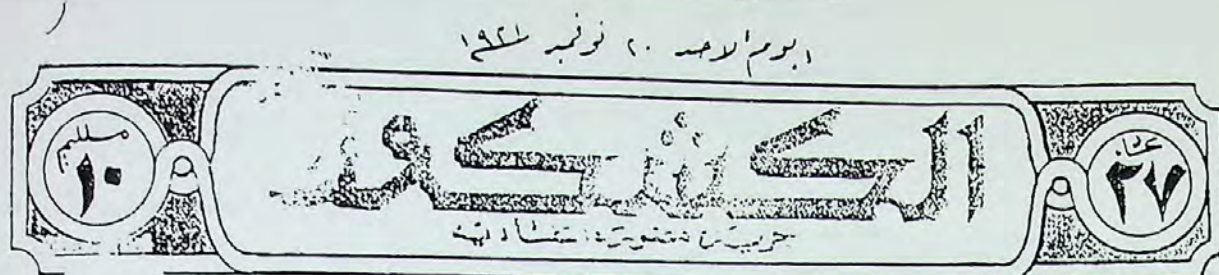 اليوم الاحد ٢٠ نوفمبر ١٩٢١
عدد
٢٧
الكشكول
١٠
جريدة مصورة انتقادية